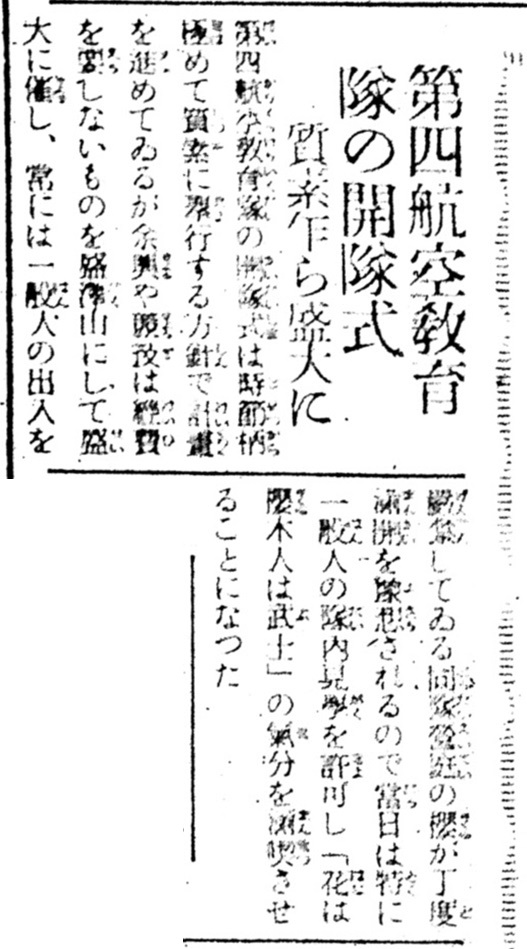 第四航空教育
隊の開隊式
質素乍ら盛大に
第四航空教育隊の開隊式は時節柄
極めて質素に擧行する方針で計畫
を進めてゐるが余興や競技は經費
を要しないものを盛澤山にして盛
大に催し、常には一般人の出入を
嚴禁してゐる同隊營庭の櫻が丁度
滿開を豫想されるので當日は特に
一般人の隊内見學を許可し「花は
櫻木人は武士」の氣分を滿喫させ
ることになつた